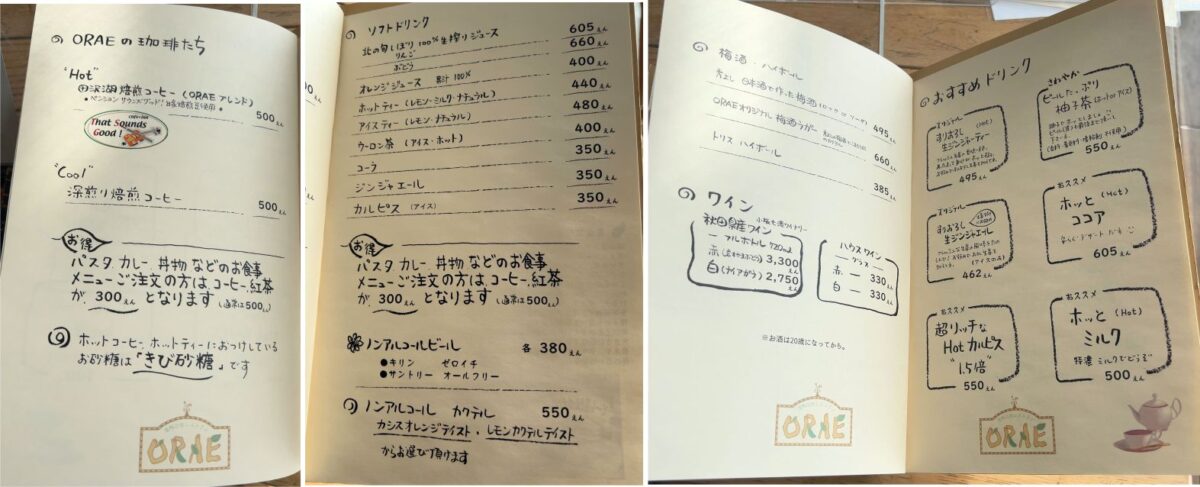 ORAEの珈琲たち
"Hot"
田沢湖焙煎コーヒー(ORAEブレンド) 500えん
COFFEE & BAR
That Sounds
Good!
"Cool"
深煎り焙煎コーヒー 500えん
お得
パスタ カレー 丼物 などのお食事
メニューご注文の方は コーヒー、紅茶
が 300えん となります (通常は500えん)
ホットコーヒー、ホットティーにおつけしている
お砂糖は「きび砂糖」です
ORAE
ソフトドリンク
北の旬しぼり 100%生搾りジュース
りんご 605えん
ぶどう 660えん
オレンジジュース 果汁100% 400えん
ホットティー(レモン・ミルク・ナチュラル) 440えん
アイスティー(レモン・ナチュラル) 480えん
ウーロン茶 (アイス・ホット) 400えん
コーラ 350えん
ジンジャエール 350えん
カルピス (アイス) 350えん
お得
パスタ カレー 丼物 などのお食事
メニューご注文の方は コーヒー、紅茶
が 300えん となります (通常は500えん)
ノンアルコールビール 各 380えん
●キリン ゼロイチ
●サントリー オールフリー
ノンアルコール カクテル 550えん
カシスオレンジテイスト・レモンカクテルテイスト
からお選び頂けます
梅酒・ハイボール
日本酒で作った梅酒 495えん
ORAEオリジナル 梅酒サガー 660えん
トリス ハイボール 385えん
ワイン
秋田県産ワイン
ーフルボトル 720ml
赤 (やまぶどう) 3,300えん
白 (ナイアガラ) 2,750えん
ハウスワイン
ーグラスー
赤 ー 330えん
白 ー 330えん
※お酒は20歳になってから。
ORAE
おすすめドリンク
オリジナル
すりおろし
生ジンジャーティー
495えん
さわやか
柚子茶 (ホット or アイス)
550えん
オリジナル
すりおろし
生ジンジャエール
(アイスのみ)
462えん
おススメ
ホッと (Hot)
ココア
605えん
おススメ
超リッチな
Hot カルピス
"1.5倍"
550えん
おススメ
ホッと (Hot)
ミルク
特濃 ミルクでどうぞ
500えん
ORAE